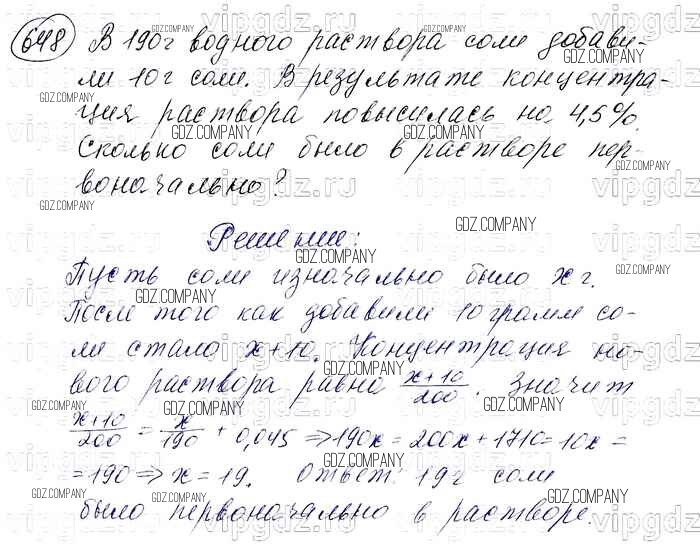 648 В 190 г водного раствора соли добави-
ли 10 г соли. В результате концентра-
ция раствора повысилась на 4,5%.
Сколько соли было в растворе пер-
воначально?
Решение:
Пусть соли изначально было x г.
После того как добавили 10 грамм со-
ли стало x+10. Концентрация но-
вого раствора равна (x+10)/200. Значит
(x+10)/200 = x/190 + 0,045 ⇒ 190x = 200x + 1710 = 10x =
= 190 ⇒ x = 19. Ответ: 19 г соли
было первоначально в растворе.
GDZ.COMPANY
vipgdz.ru